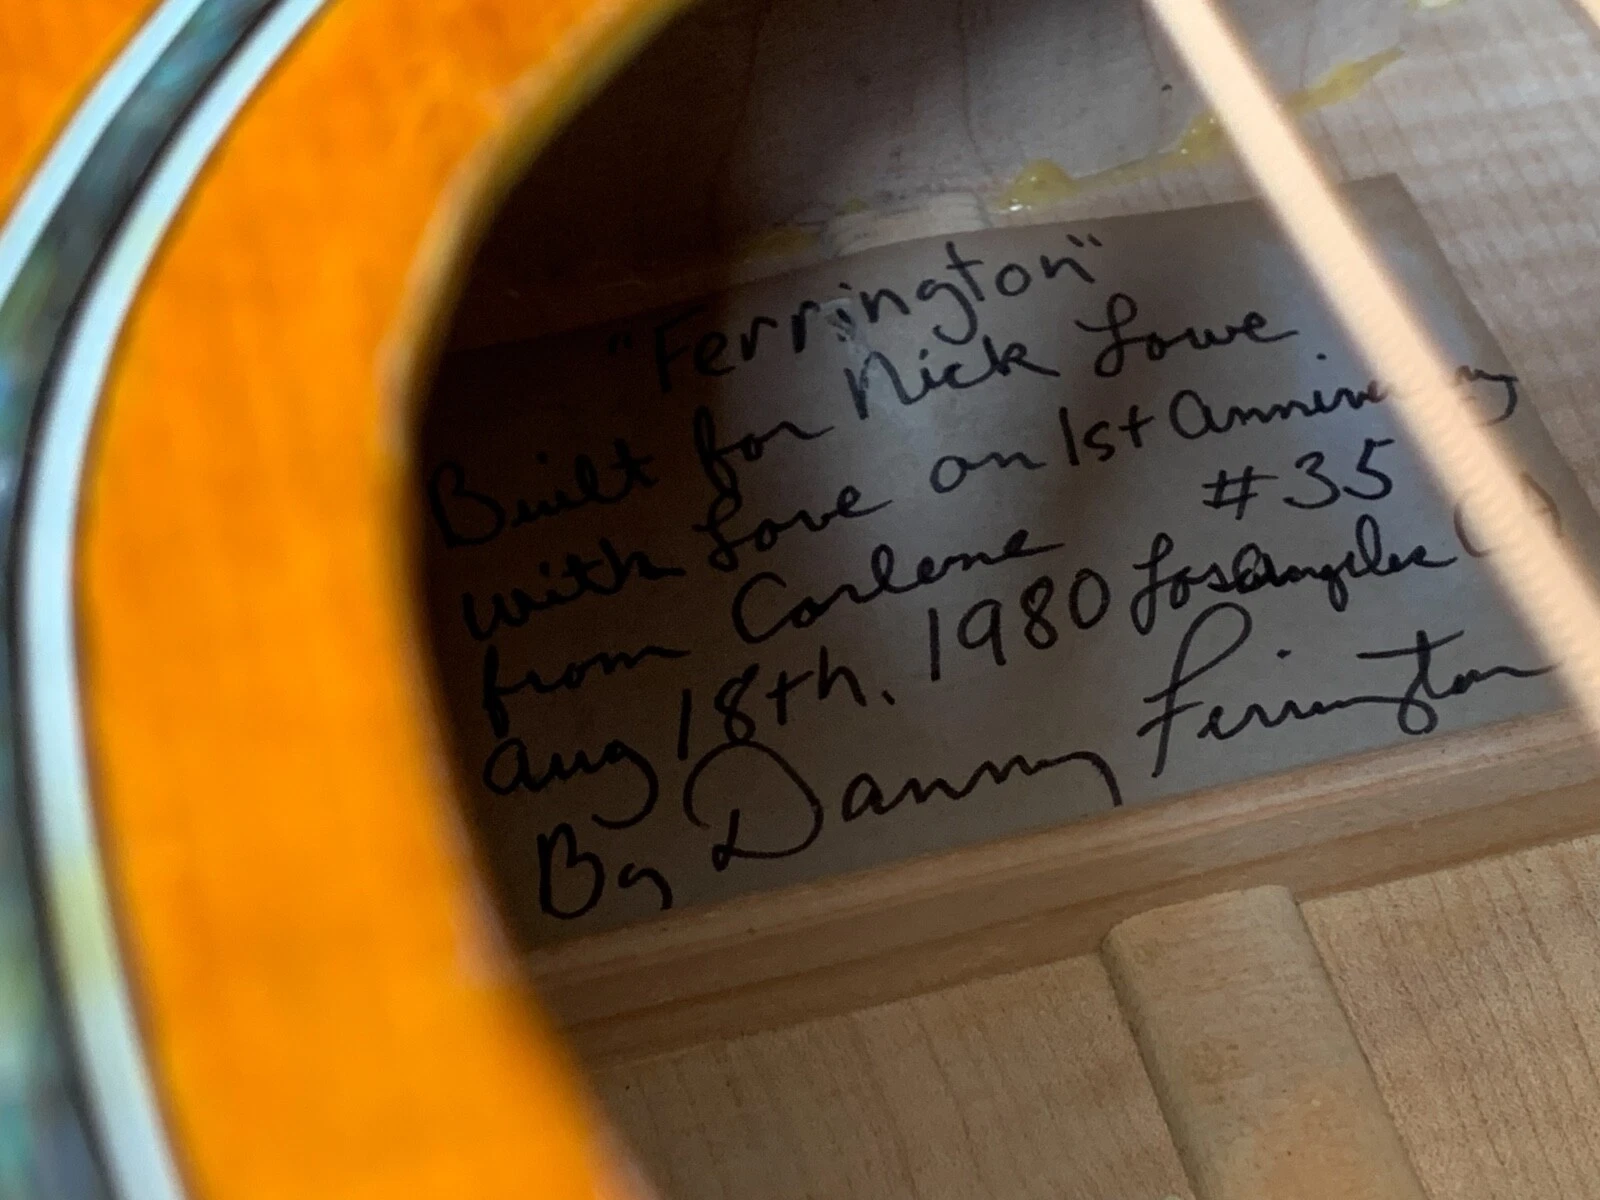 "Ferrington"
Built for Nick Lowe
with Love on 1st Anniversary
from Carlene #35
Aug 18th, 1980 Los Angeles
By Danny Ferrington